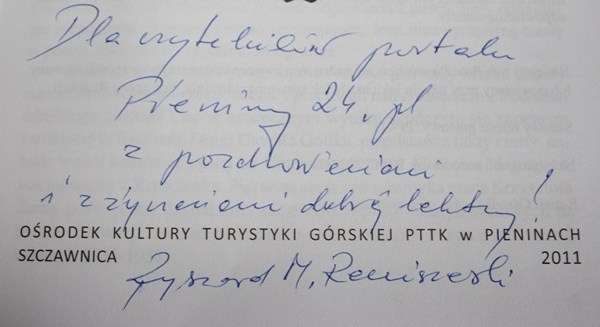 Dla czytelników portalu
Pieniny 24.pl
z pozdrowieniami
i z życzeniami dobrej lektury!
OŚRODEK KULTURY TURYSTYKI GÓRSKIEJ PTTK w PIENINACH
SZCZAWNICA 2011
Ryszard M. Remiszewski